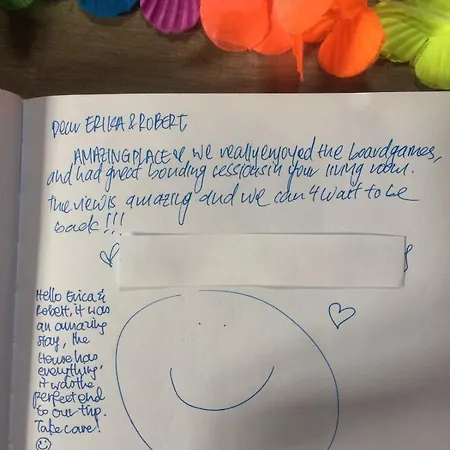 Dear ERIKA & ROBERT,
AMAZING PLACE ♥ we really enjoyed the boardgames,
and had great bonding sessions in your living room.
The view is amazing and we can't wait to be
back!!!
Hello Erica &
Robert, it was
an amazing
stay, the
House has
everything,
it was the
perfect end
to our trip.
Take care!